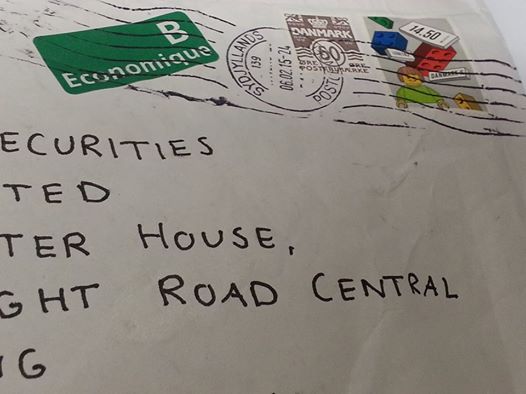 B
Economique
SYDJYLLANDS
199
06.02.15-24
POSTC
DANMARK
60
ØRE ØRE
14.50
DANMARK
ECURITIES
TED
TER HOUSE,
GHT ROAD CENTRAL
G